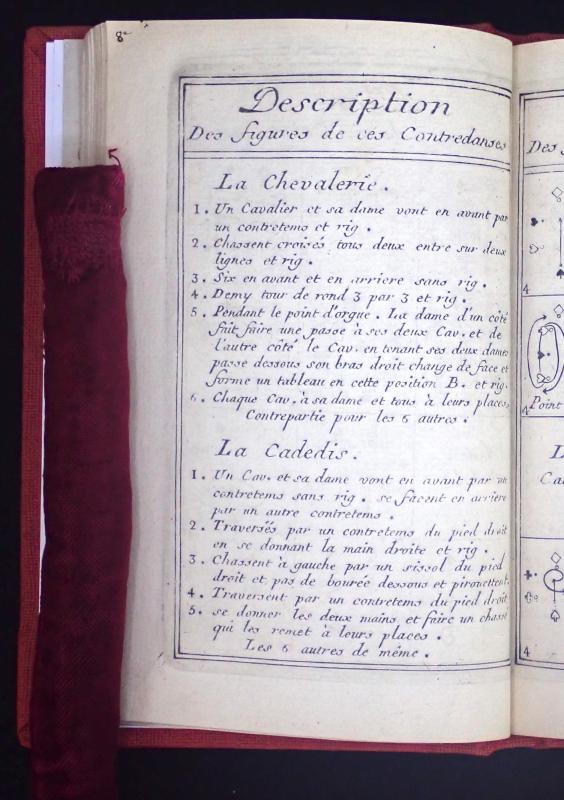 8e
Description
Des figures de ces Contredanses
La Chevalerie.
1. Un Cavalier et sa dame vont en avant par
un contretems et rig.
2. Chassent croisés tous deux entre sur deux
lignes et rig.
3. Six en avant et en arriere sans rig.
4. Demy tour de rond 3 par 3 et rig.
5. Pendant le point d'orgue. La dame d'un côté
fait faire une passe à ses deux Cav. et de
l'autre côté le Cav. en tenant ses deux dames
passe dessous son bras droit change de face et
forme un tableau en cette position B. et rig.
6. Chaque Cav. à sa dame et tous à leurs places,
Contrepartie pour les 6 autres.
La Cadedis.
1. Un Cav. et sa dame vont en avant par un
contretems sans rig. se facent en arriere
par un autre contretems.
2. Traversés par un contretems du pied droit
en se donnant la main droite et rig.
3. Chassent à gauche par un sissol du pied
droit et pas de bourée dessous et pirouettent.
4. Traversent par un contretems du pied droit
5. se donner les deux mains et faire un chassé
qui les remet à leurs places.
Les 6 autres de même.
Des
4
4
Point
L
Ca
4